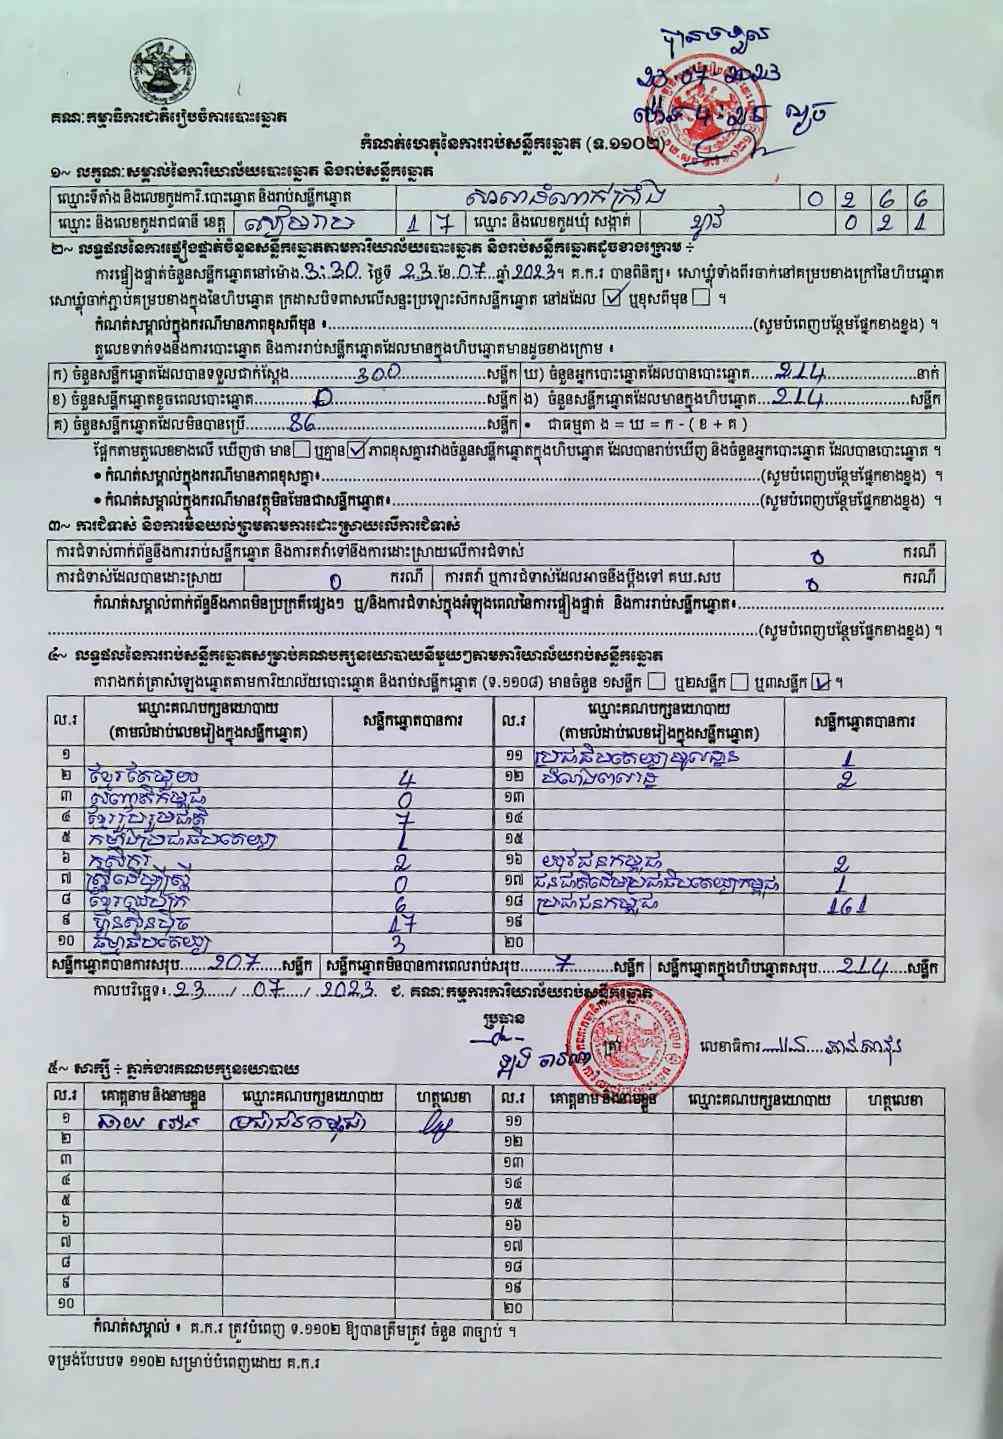 បានទទួល
23-07-2023
គណៈកម្មាធិការជាតិរៀបចំការបោះឆ្នោត
កំណត់ហេតុនៃការរាប់សន្លឹកឆ្នោត (ទ.១១០២)
១~ លក្ខណៈសម្គាល់នៃការិយាល័យបោះឆ្នោត និងរាប់សន្លឹកឆ្នោត
ឈ្មោះទីតាំង និងលេខកូដការិ.បោះឆ្នោត និងរាប់សន្លឹកឆ្នោត សាលាដំណាក់ក្រាំង 0 2 6 6
ឈ្មោះ និងលេខកូដរាជធានី ខេត្ត សៀមរាប 1 7 ឈ្មោះ និងលេខកូដឃុំ សង្កាត់ 0 2 1
២~ លទ្ធផលនៃការផ្ទៀងផ្ទាត់ចំនួនសន្លឹកឆ្នោតតាមការិយាល័យបោះឆ្នោត និងរាប់សន្លឹកឆ្នោតដូចខាងក្រោម ÷
ការផ្ទៀងផ្ទាត់ចំនួនសន្លឹកឆ្នោតនៅម៉ោង 3:30 ថ្ងៃទី 23 ខែ 07 ឆ្នាំ 2023។ គ.ក.រ បានពិនិត្យ៖ សោឃ្លុំទាំងពីរចាក់នៅគម្របខាងក្រៅនៃហិបឆ្នោត
សោឃ្លុំចាក់ភ្ជាប់គម្របខាងក្នុងនៃហិបឆ្នោត ក្រដាសបិទពាសលើសន្ទះប្រឡោះស៊កសន្លឹកឆ្នោត នៅដដែល ☑ ឬខុសពីមុន ☐ ។
កំណត់សម្គាល់ក្នុងករណីមានភាពខុសពីមុន ៖ (សូមបំពេញបន្ថែមផ្នែកខាងខ្នង) ។
តួលេខទាក់ទងនឹងការបោះឆ្នោត និងការរាប់សន្លឹកឆ្នោតដែលមានក្នុងហិបឆ្នោតមានដូចខាងក្រោម ៖
ក) ចំនួនសន្លឹកឆ្នោតដែលបានទទួលជាក់ស្តែង 300 សន្លឹក ឃ) ចំនួនអ្នកបោះឆ្នោតដែលបានបោះឆ្នោត 214 នាក់
ខ) ចំនួនសន្លឹកឆ្នោតខូចពេលបោះឆ្នោត 0 សន្លឹក ង) ចំនួនសន្លឹកឆ្នោតដែលមានក្នុងហិបឆ្នោត 214 សន្លឹក
គ) ចំនួនសន្លឹកឆ្នោតដែលមិនបានប្រើ 86 សន្លឹក • ជាធម្មតា ង = ឃ = ក - ( ខ + គ )
ផ្អែកតាមតួលេខខាងលើ ឃើញថា មាន ☐ ឬគ្មាន ☑ ភាពខុសគ្នារវាងចំនួនសន្លឹកឆ្នោតក្នុងហិបឆ្នោត ដែលបានរាប់ឃើញ និងចំនួនអ្នកបោះឆ្នោត ដែលបានបោះឆ្នោត ។
• កំណត់សម្គាល់ក្នុងករណីមានភាពខុសគ្នា៖ (សូមបំពេញបន្ថែមផ្នែកខាងខ្នង) ។
• កំណត់សម្គាល់ក្នុងករណីមានវត្ថុមិនមែនជាសន្លឹកឆ្នោត៖ (សូមបំពេញបន្ថែមផ្នែកខាងខ្នង) ។
៣~ ការជំទាស់ និងការមិនយល់ព្រមតាមការដោះស្រាយលើការជំទាស់
ការជំទាស់ពាក់ព័ន្ធនឹងការរាប់សន្លឹកឆ្នោត និងការតវ៉ាទៅនឹងការដោះស្រាយលើការជំទាស់ 0 ករណី
ការជំទាស់ដែលបានដោះស្រាយ 0 ករណី ការតវ៉ា ឬការជំទាស់ដែលអាចនឹងប្តឹងទៅ គឃ.សប 0 ករណី
កំណត់សម្គាល់ពាក់ព័ន្ធនឹងភាពមិនប្រក្រតីផ្សេងៗ ឬ/និងការជំទាស់ក្នុងអំឡុងពេលនៃការផ្ទៀងផ្ទាត់ និងការរាប់សន្លឹកឆ្នោត៖
(សូមបំពេញបន្ថែមផ្នែកខាងខ្នង) ។
៤~ លទ្ធផលនៃការរាប់សន្លឹកឆ្នោតសម្រាប់គណបក្សនយោបាយនីមួយៗតាមការិយាល័យរាប់សន្លឹកឆ្នោត
តារាងកត់ត្រាសំឡេងឆ្នោតតាមការិយាល័យបោះឆ្នោត និងរាប់សន្លឹកឆ្នោត (ទ.១១០៨) មានចំនួន ១សន្លឹក ☐ ឬ២សន្លឹក ☐ ឬ៣សន្លឹក ☑ ។
ល.រ ឈ្មោះគណបក្សនយោបាយ (តាមលំដាប់លេខរៀងក្នុងសន្លឹកឆ្នោត) សន្លឹកឆ្នោតបានការ ល.រ ឈ្មោះគណបក្សនយោបាយ (តាមលំដាប់លេខរៀងក្នុងសន្លឹកឆ្នោត) សន្លឹកឆ្នោតបានការ
១ ១១ ប្រជាធិបតេយ្យមូលដ្ឋាន 1
២ ខ្មែរតែមួយ 4 ១២ 2
៣ សញ្ជាតិកម្ពុជា 0 ១៣
៤ ខ្មែររួបរួមជាតិ 7 ១៤
៥ កម្លាំងប្រជាធិបតេយ្យ 1 ១៥
៦ កសិករ 2 ១៦ យុវជនកម្ពុជា 2
៧ ស្ត្រីដើម្បីស្ត្រី 0 ១៧ ជនជាតិដើមប្រជាធិបតេយ្យកម្ពុជា 1
៨ ខ្មែរឈប់ក្រ 6 ១៨ ប្រជាជនកម្ពុជា 161
៩ ហ៊្វុនស៊ិនប៉ិច 17 ១៩
១០ ធម្មាធិបតេយ្យ 3 ២០
សន្លឹកឆ្នោតបានការសរុប 207 សន្លឹក សន្លឹកឆ្នោតមិនបានការពេលរាប់សរុប 7 សន្លឹក សន្លឹកឆ្នោតក្នុងហិបឆ្នោតសរុប 214 សន្លឹក
កាលបរិច្ឆេទ៖ 23 / 07 / 2023 ជ. គណៈកម្មការការិយាល័យរាប់សន្លឹកឆ្នោត
ប្រធាន
លេខាធិការ
៥~ សាក្សី ÷ ភ្នាក់ងារគណបក្សនយោបាយ
ល.រ គោត្តនាម និងនាមខ្លួន ឈ្មោះគណបក្សនយោបាយ ហត្ថលេខា ល.រ គោត្តនាម និងនាមខ្លួន ឈ្មោះគណបក្សនយោបាយ ហត្ថលេខា
១ ប្រជាជនកម្ពុជា ១១
២ ១២
៣ ១៣
៤ ១៤
៥ ១៥
៦ ១៦
៧ ១៧
៨ ១៨
៩ ១៩
១០ ២០
កំណត់សម្គាល់ ៖ គ.ក.រ ត្រូវបំពេញ ទ.១១០២ ឱ្យបានត្រឹមត្រូវ ចំនួន ៣ច្បាប់ ។
ទម្រង់បែបបទ ១១០២ សម្រាប់បំពេញដោយ គ.ក.រ